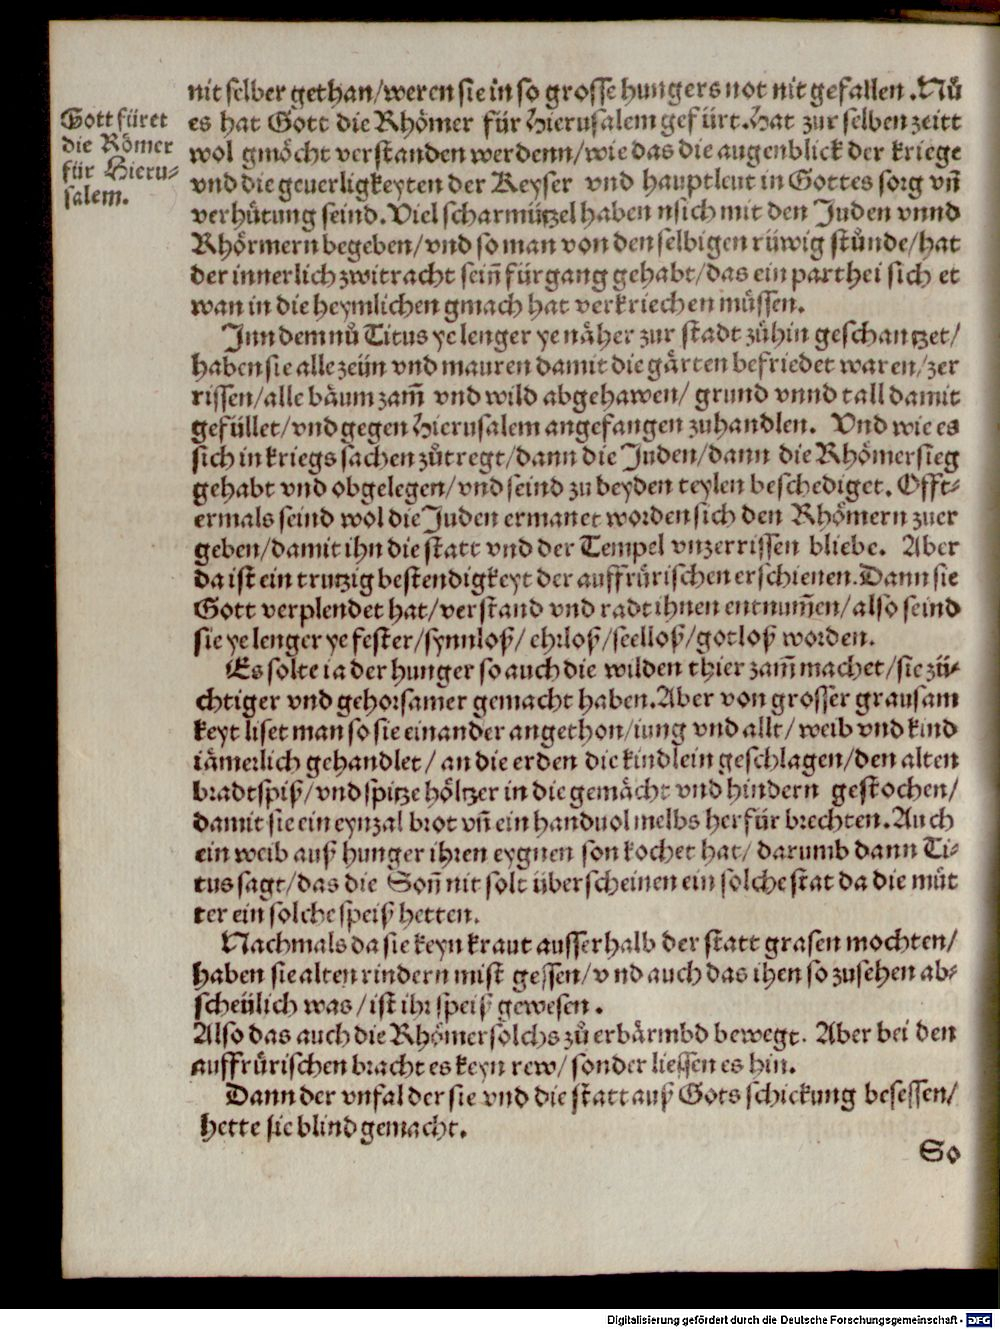 nit selber gethan/weren sie in so grosse hungers not nit gefallen. Nů
Gott füret
die Römer
für Hieru⸗
salem.
es hat Gott die Rhömer für Hierusalem gefürt. Hat zur selben zeitt
wol gmöcht verstanden werdenn/wie das die augenblick der kriege
vnd die geuerligkeyten der Keyser vnd hauptleut in Gottes sorg vñ
verhütung seind. Viel scharmützel haben nsich mit den Juden vnnd
Rhörmern begeben/vnd so man von den selbigen rüwig stůnde/hat
der innerlich zwitracht sein̄ fürgang gehabt/das ein parthei sich et
wan in die heymlichen gmach hat verkriechen müssen.
Inn dem nů Titus ye lenger ye näher zur stadt zůhin geschantzet/
haben sie alle zeün vnd mauren damit die gärten befriedet waren/zer
rissen/alle bäum zam̄ vnd wild abgehawen/ grund vnnd tall damit
gefüllet/vnd gegen Hierusalem angefangen zuhandlen. Vnd wie es
sich in kriegs sachen zůtregt/dann die Juden/dann die Rhömer sieg
gehabt vnd obgelegen/vnd seind zu beyden teylen beschediget. Offt⸗
ermals seind wol die Juden ermanet worden sich den Rhömern zuer
geben/damit ihn die statt vnd der Tempel vnzerrissen bliebe. Aber
da ist ein trutzig bestendigkeyt der auffrürischen erschienen. Dann sie
Gott verplendet hat/verstand vnd radt ihnen entnum̄en/also seind
sie ye lenger ye fester/synnloß/ ehrloß/seelloß/gotloß worden.
Es solte ia der hunger so auch die wilden thier zam̄ machet/sie zü⸗
chtiger vnd gehorsamer gemacht haben. Aber von grosser grausam
keyt liset man so sie einander angethon/iung vnd allt/ weib vnd kind
iämerlich gehandlet/ an die erden die kindlein geschlagen/den alten
bradtspiß/vnd spitze höltzer in die gemächt vnd hindern gestochen/
damit sie ein eynzal brot vñ ein handuol melbs herfür brechten. Auch
ein weib auß hunger ihren eygnen son kochet hat/ darumb dann Ti⸗
tus sagt/das die Son̄ nit solt überscheinen ein solche stat da die müt
ter ein solche speiß hetten.
Nachmals da sie keyn kraut ausserhalb der statt grasen mochten/
haben sie alten rindern mist gessen/vnd auch das ihen so zusehen ab⸗
scheülich was/ist ihr speiß gewesen.
Also das auch die Rhömer solchs zů erbärmbd bewegt. Aber bei den
auffrürischen bracht es keyn rew/ sonder liessen es hin.
Dann der vnfal der sie vnd die statt auß Gots schickung besessen/
hette sie blind gemacht.
So
Digitalisierung gefördert durch die Deutsche Forschungsgemeinschaft - DFG